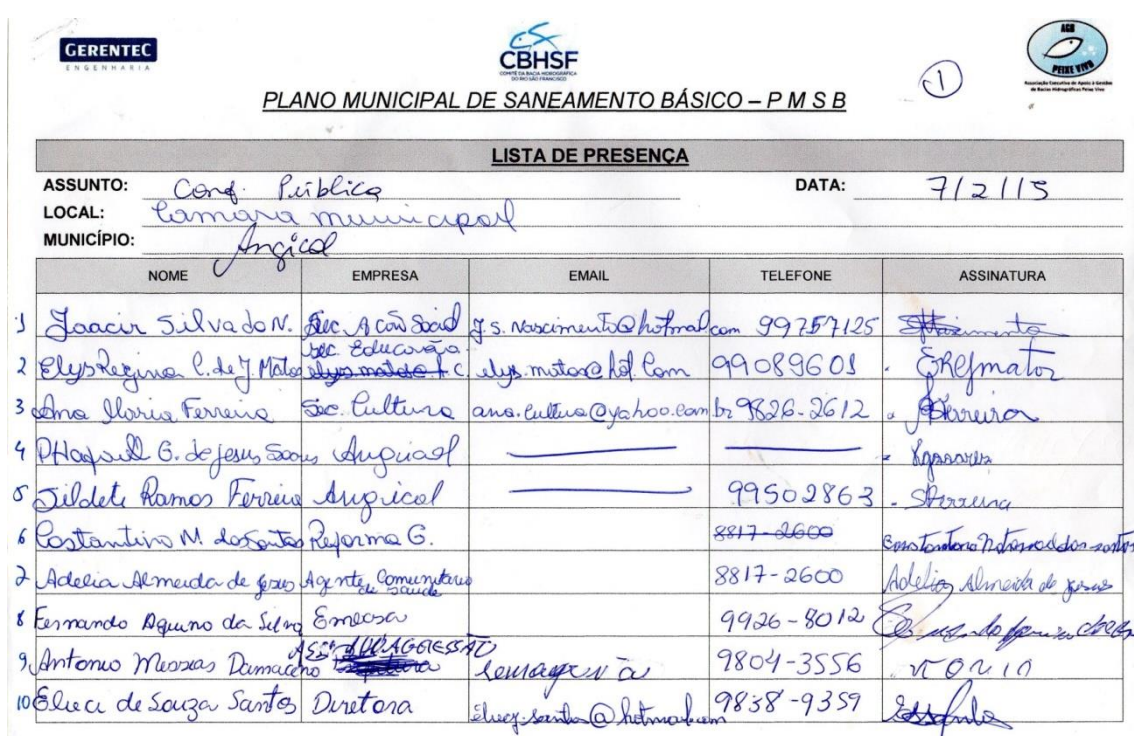 GERENTEC
ENGENHARIA
CBHSF
COMITÊ DA BACIA HIDROGRÁFICA
DO RIO SÃO FRANCISCO
AGB
PEIXE VIVO
Associação Executiva de Apoio à Gestão
de Bacias Hidrográficas Peixe Vivo
1
PLANO MUNICIPAL DE SANEAMENTO BÁSICO – P M S B
LISTA DE PRESENÇA
ASSUNTO: Conf. Pública DATA: 7/2/15
LOCAL: Camara municipal
MUNICÍPIO: Angical
NOME EMPRESA EMAIL TELEFONE ASSINATURA
1 Joacir Silva do N. Sec. Acão Social J.S. Nascimento@hotmail.com 99757125
2 Elys Regina C. de J. Matos Sec. Educação elys.matos@hot.com 99089601 EREJmatos
3 Ana Gloria Ferreira Sec. Cultura ana.cultura@yahoo.com.br 9826-2612 Ferreira
4 G. de Jesus Soares Angical
5 Sildete Ramos Ferreira Angical 99502863 SFerreira
6 Costantino N. dos Santos Reforma G. 8817-2600
7 Adelia Almeida de Jesus Agente Comunitário de saúde 8817-2600 Adelia Almeida de Jesus
8 Fernando Aquino da Silva 9926-8012
9 Antonio Messias Damaceno 9804-3556
10 Eluci de Souza Santos Diretora 9838-9359